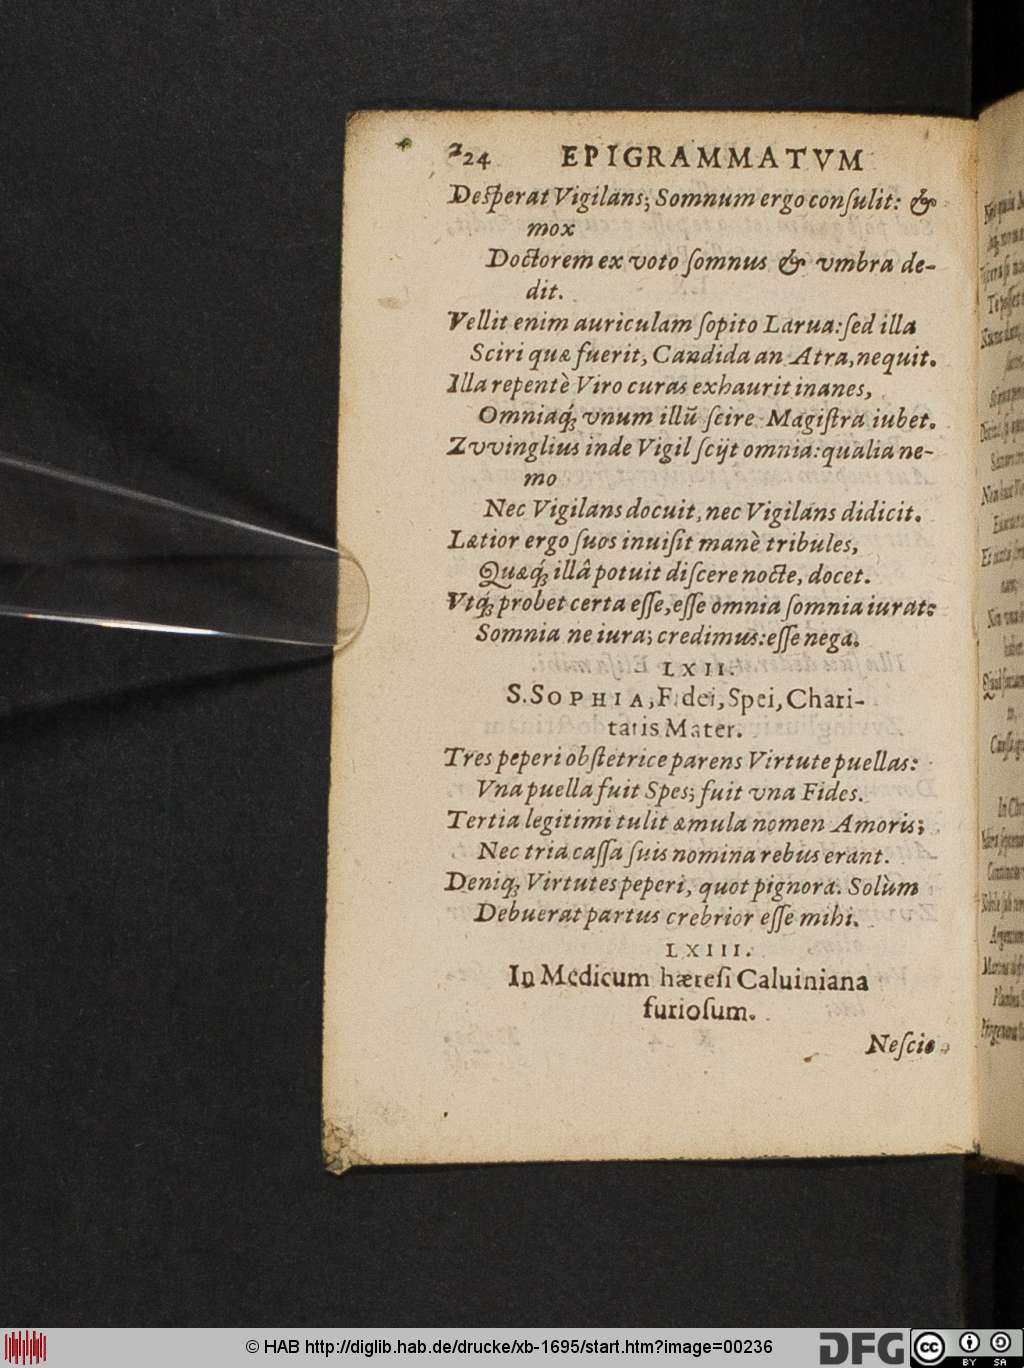 224 EPIGRAMMATVM
Desperat Vigilans; Somnum ergo conſulit: &
mox
Doctorem ex voto ſomnus & vmbra de-
dit.
Vellit enim auriculam ſopito Larua: ſed illa
Sciri quæ fuerit, Candida an Atra, nequit.
Illa repentè Viro curas exhaurit inanes,
Omniaq́; vnum illũ ſcire Magiſtra iubet.
Zvvinglius inde Vigil ſcijt omnia: qualia ne-
mo
Nec Vigilans docuit, nec Vigilans didicit.
Lætior ergo ſuos inuiſit manè tribules,
Quæq́; illâ potuit diſcere nocte, docet.
Vtq́; probet certa eſſe, eſſe omnia ſomnia iurat:
Somnia ne iura; credimus: eſſe nega.
LXII.
S. SOPHIA, Fidei, Spei, Chari-
tatis Mater.
Tres peperi obſtetrice parens Virtute puellas:
Vna puella fuit Spes; fuit vna Fides.
Tertia legitimi tulit æmula nomen Amoris;
Nec tria caſſa ſuis nomina rebus erant.
Deniq; Virtutes peperi, quot pignora. Solùm
Debuerat partus crebrior eſſe mihi.
LXIII.
In Medicum hæreſi Caluiniana
furioſum.
Neſcio
© HAB http://diglib.hab.de/drucke/xb-1695/start.htm?image=00236
DFG
cc BY SA